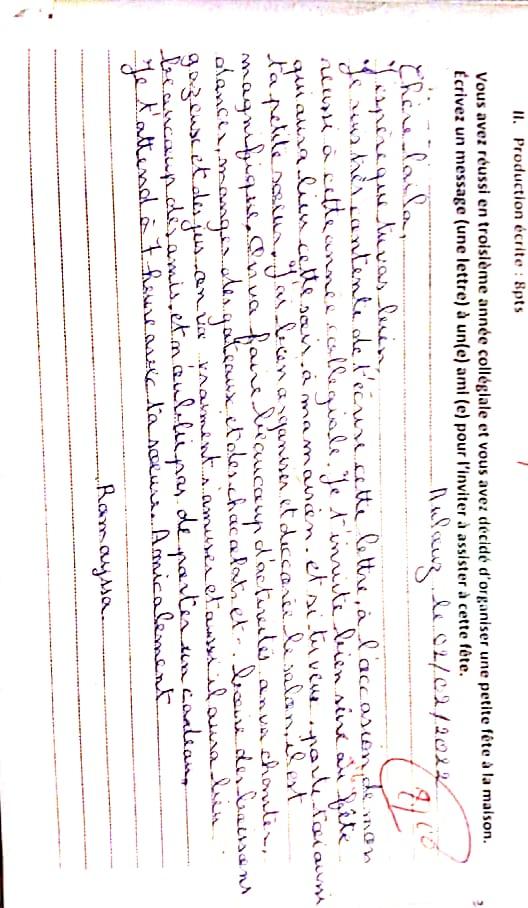 II. Production écrite : 8pts
Vous avez réussi en troisième année collégiale et vous avez décidé d'organiser une petite fête à la maison.
Écrivez un message (une lettre) à un(e) ami (e) pour l'inviter à assister à cette fête.
le 02/02/2022
Chère Laila,
J'espère que tu vas bien,
Je suis très contente de t'écrire cette lettre, à l'accasion de mon
reussi à cette année collégiale. Je t'invite bien sûre au fête
qui aura lieu cette soir à ma maison. et si tu veux, parle taussi
ta petite soeur. J'ai bien organiser et décorée le salon, il est
magnifique. On va faire beaucoup d'activités, on va chanter,
dancer, manger des gateaux et des chacalats et boire des boissons
gazeuse et des jus on va vraiment s'amuser et aussi il aura lieu
beaucoup des amis. et n'oublie pas de porter un cadeau,
Je t'attend à 7 heure avec ta soeure. Amicalement
Romayssa